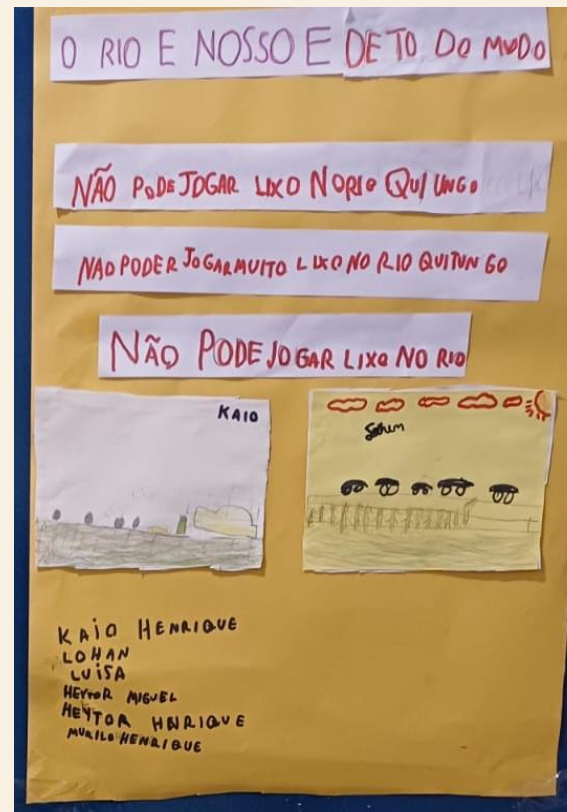 O RIO E NOSSO E DE TO DO MUDO
NÃO PODE JOGAR LIXO NO RIO QUI UNGO
NAO PODER JOGAR MUITO LIXO NO RIO QUITUNGO
NÃO PODE JOGAR LIXO NO RIO
KAIO
KAIO HENRIQUE
LOHAN
LUISA
HEYTOR MIGUEL
HEYTOR HNRIQUE
MURILO HENRIQUE